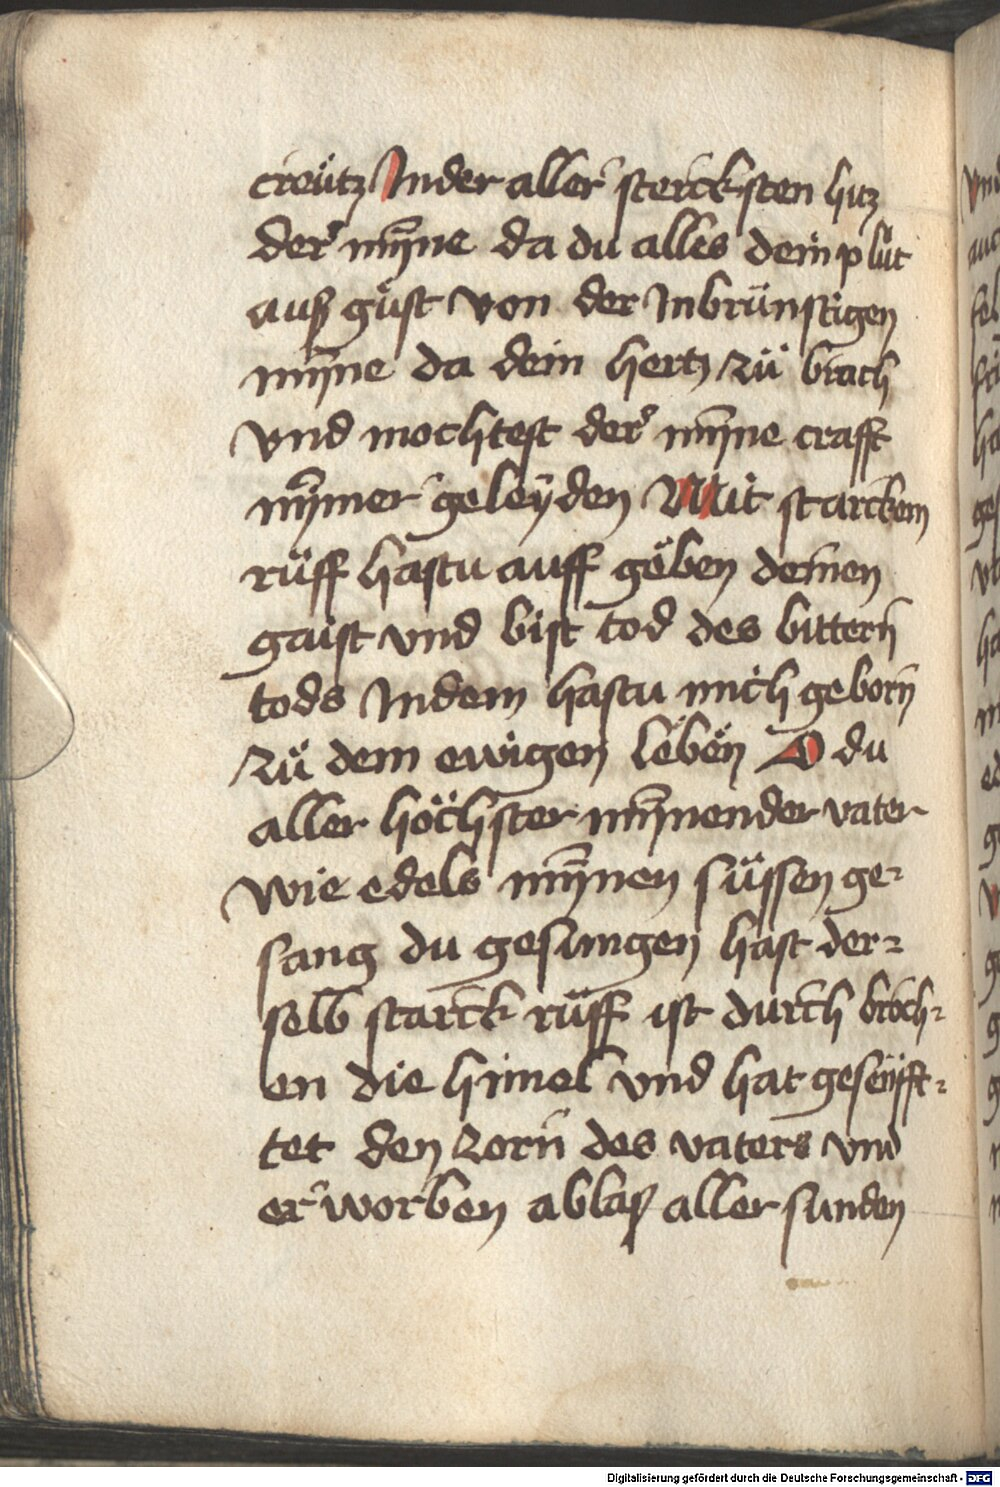 creütz In der aller stercksten hitz
der mȳne da du alles dein plüt
auß güst von der Inbrünstigen
mȳne da dein hertz zü brach
vnd mochtest der mȳne crafft
nȳmer geleyden Mit starckem
rüff hastu auff gëben deinen
gaist vnd bist tod des bittern
tods Indem hastu mich geborn
zü dem ewigen lëbën O du
aller höchster mȳnender vater
wie edels mȳnen süssen ge-
sang du gesungen hast der-
selb starck rüff ist durch broch-
en die himel vnd hat gesenfft-
tet den zorn des vaters vnd
erworben ablaß aller sunden
Digitalisierung gefördert durch die Deutsche Forschungsgemeinschaft - DFG